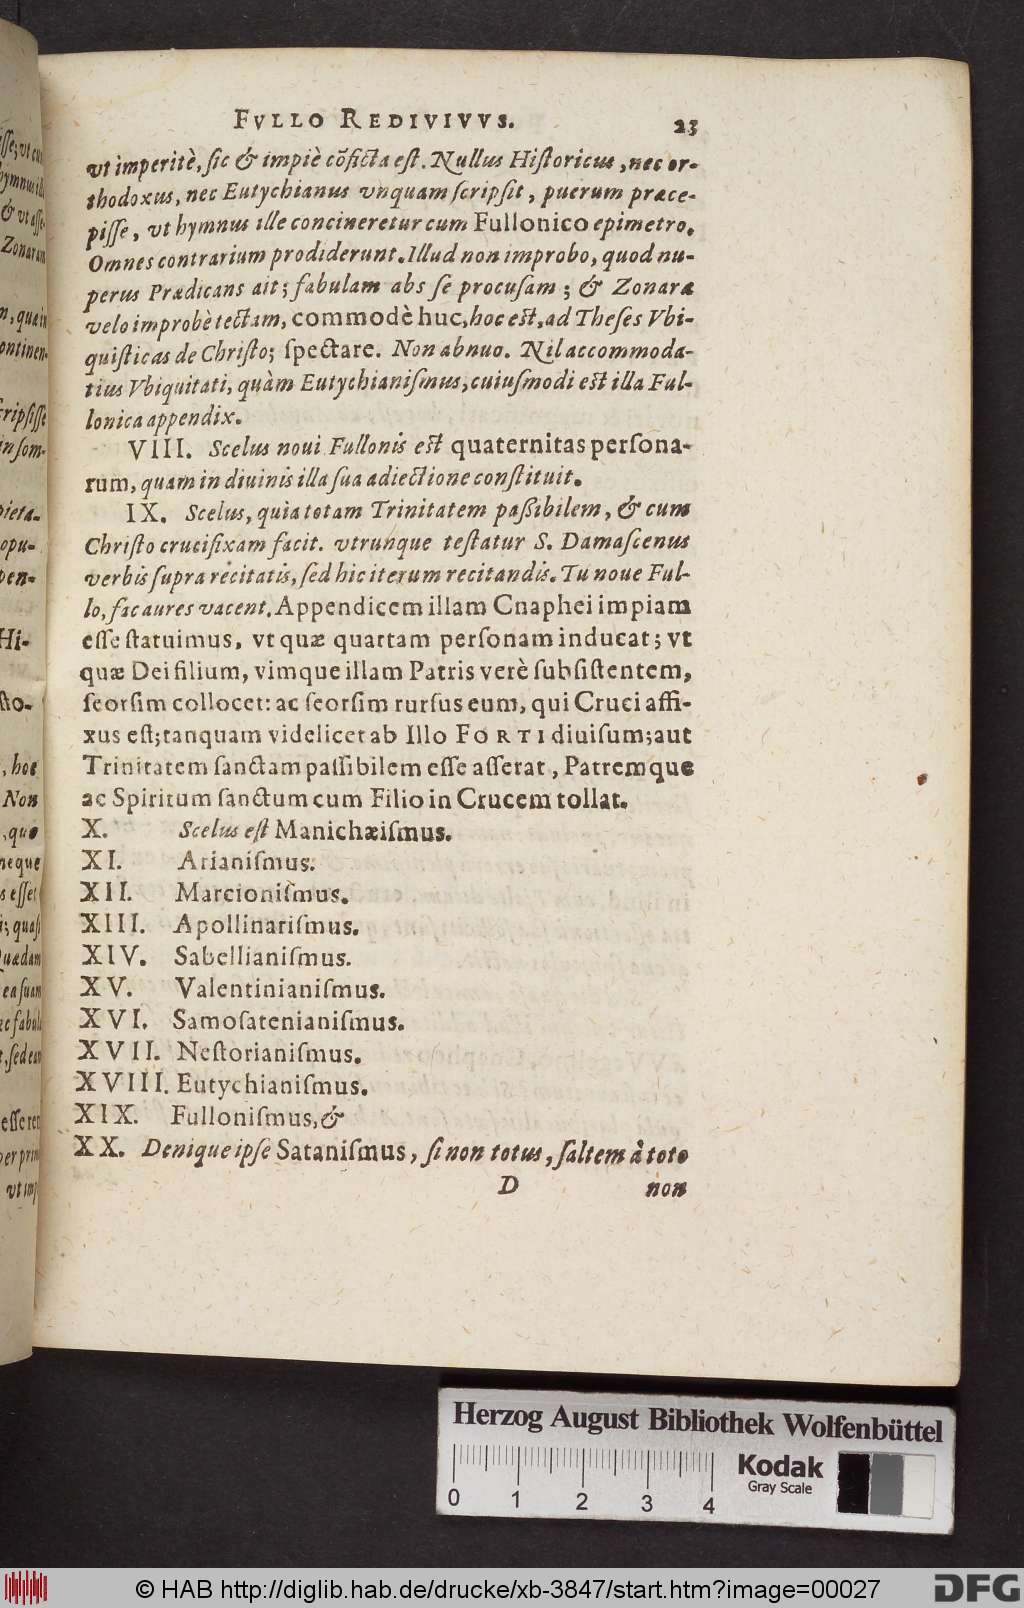 FVLLO REDIVIVVS. 23
vt imperitè, sic & impiè cõficta est. Nullus Historicus, nec or-
thodoxus, nec Eutychianus vnquam scripsit, puerum præce-
pisse, vt hymnus ille concineretur cum Fullonico epimetro.
Omnes contrarium prodiderunt. Illud non improbo, quod nu-
perus Prædicans ait; fabulam abs se procusam; & Zonaræ
velo improbè tectam, commodè huc, hoc est, ad Theses Vbi-
quisticas de Christo; spectare. Non abnuo. Nil accommoda-
tius Vbiquitati, quàm Eutychianismus, cuiusmodi est illa Ful-
lonica appendix.
VIII. Scelus noui Fullonis est quaternitas persona-
rum, quam in diuinis illa sua adiectione constituit.
IX. Scelus, quia totam Trinitatem passibilem, & cum
Christo crucifixam facit. vtrunque testatur S. Damascenus
verbis supra recitatis, sed hic iterum recitandis. Tu noue Ful-
lo, fac aures vacent. Appendicem illam Cnaphei impiam
esse statuimus, vt quæ quartam personam inducat; vt
quæ Dei filium, vimque illam Patris verè subsistentem,
seorsim collocet: ac seorsim rursus eum, qui Cruci affi-
xus est; tanquam videlicet ab Illo FORTI diuisum; aut
Trinitatem sanctam passibilem esse asserat, Patremque
ac Spiritum sanctum cum Filio in Crucem tollat.
X. Scelus est Manichæismus.
XI. Arianismus.
XII. Marcionismus.
XIII. Apollinarismus.
XIV. Sabellianismus.
XV. Valentinianismus.
XVI. Samosatenianismus.
XVII. Nestorianismus.
XVIII. Eutychianismus.
XIX. Fullonismus, &
XX. Denique ipse Satanismus, si non totus, saltem à toto
D non
Herzog August Bibliothek Wolfenbüttel
Kodak
Gray Scale
0 1 2 3 4
© HAB http://diglib.hab.de/drucke/xb-3847/start.htm?image=00027
DFG